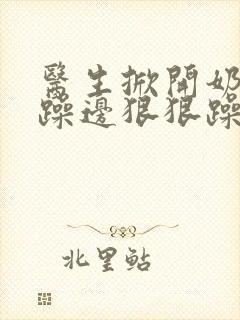 醫生掀開奶
躁邊狠狠躁
北里鲇